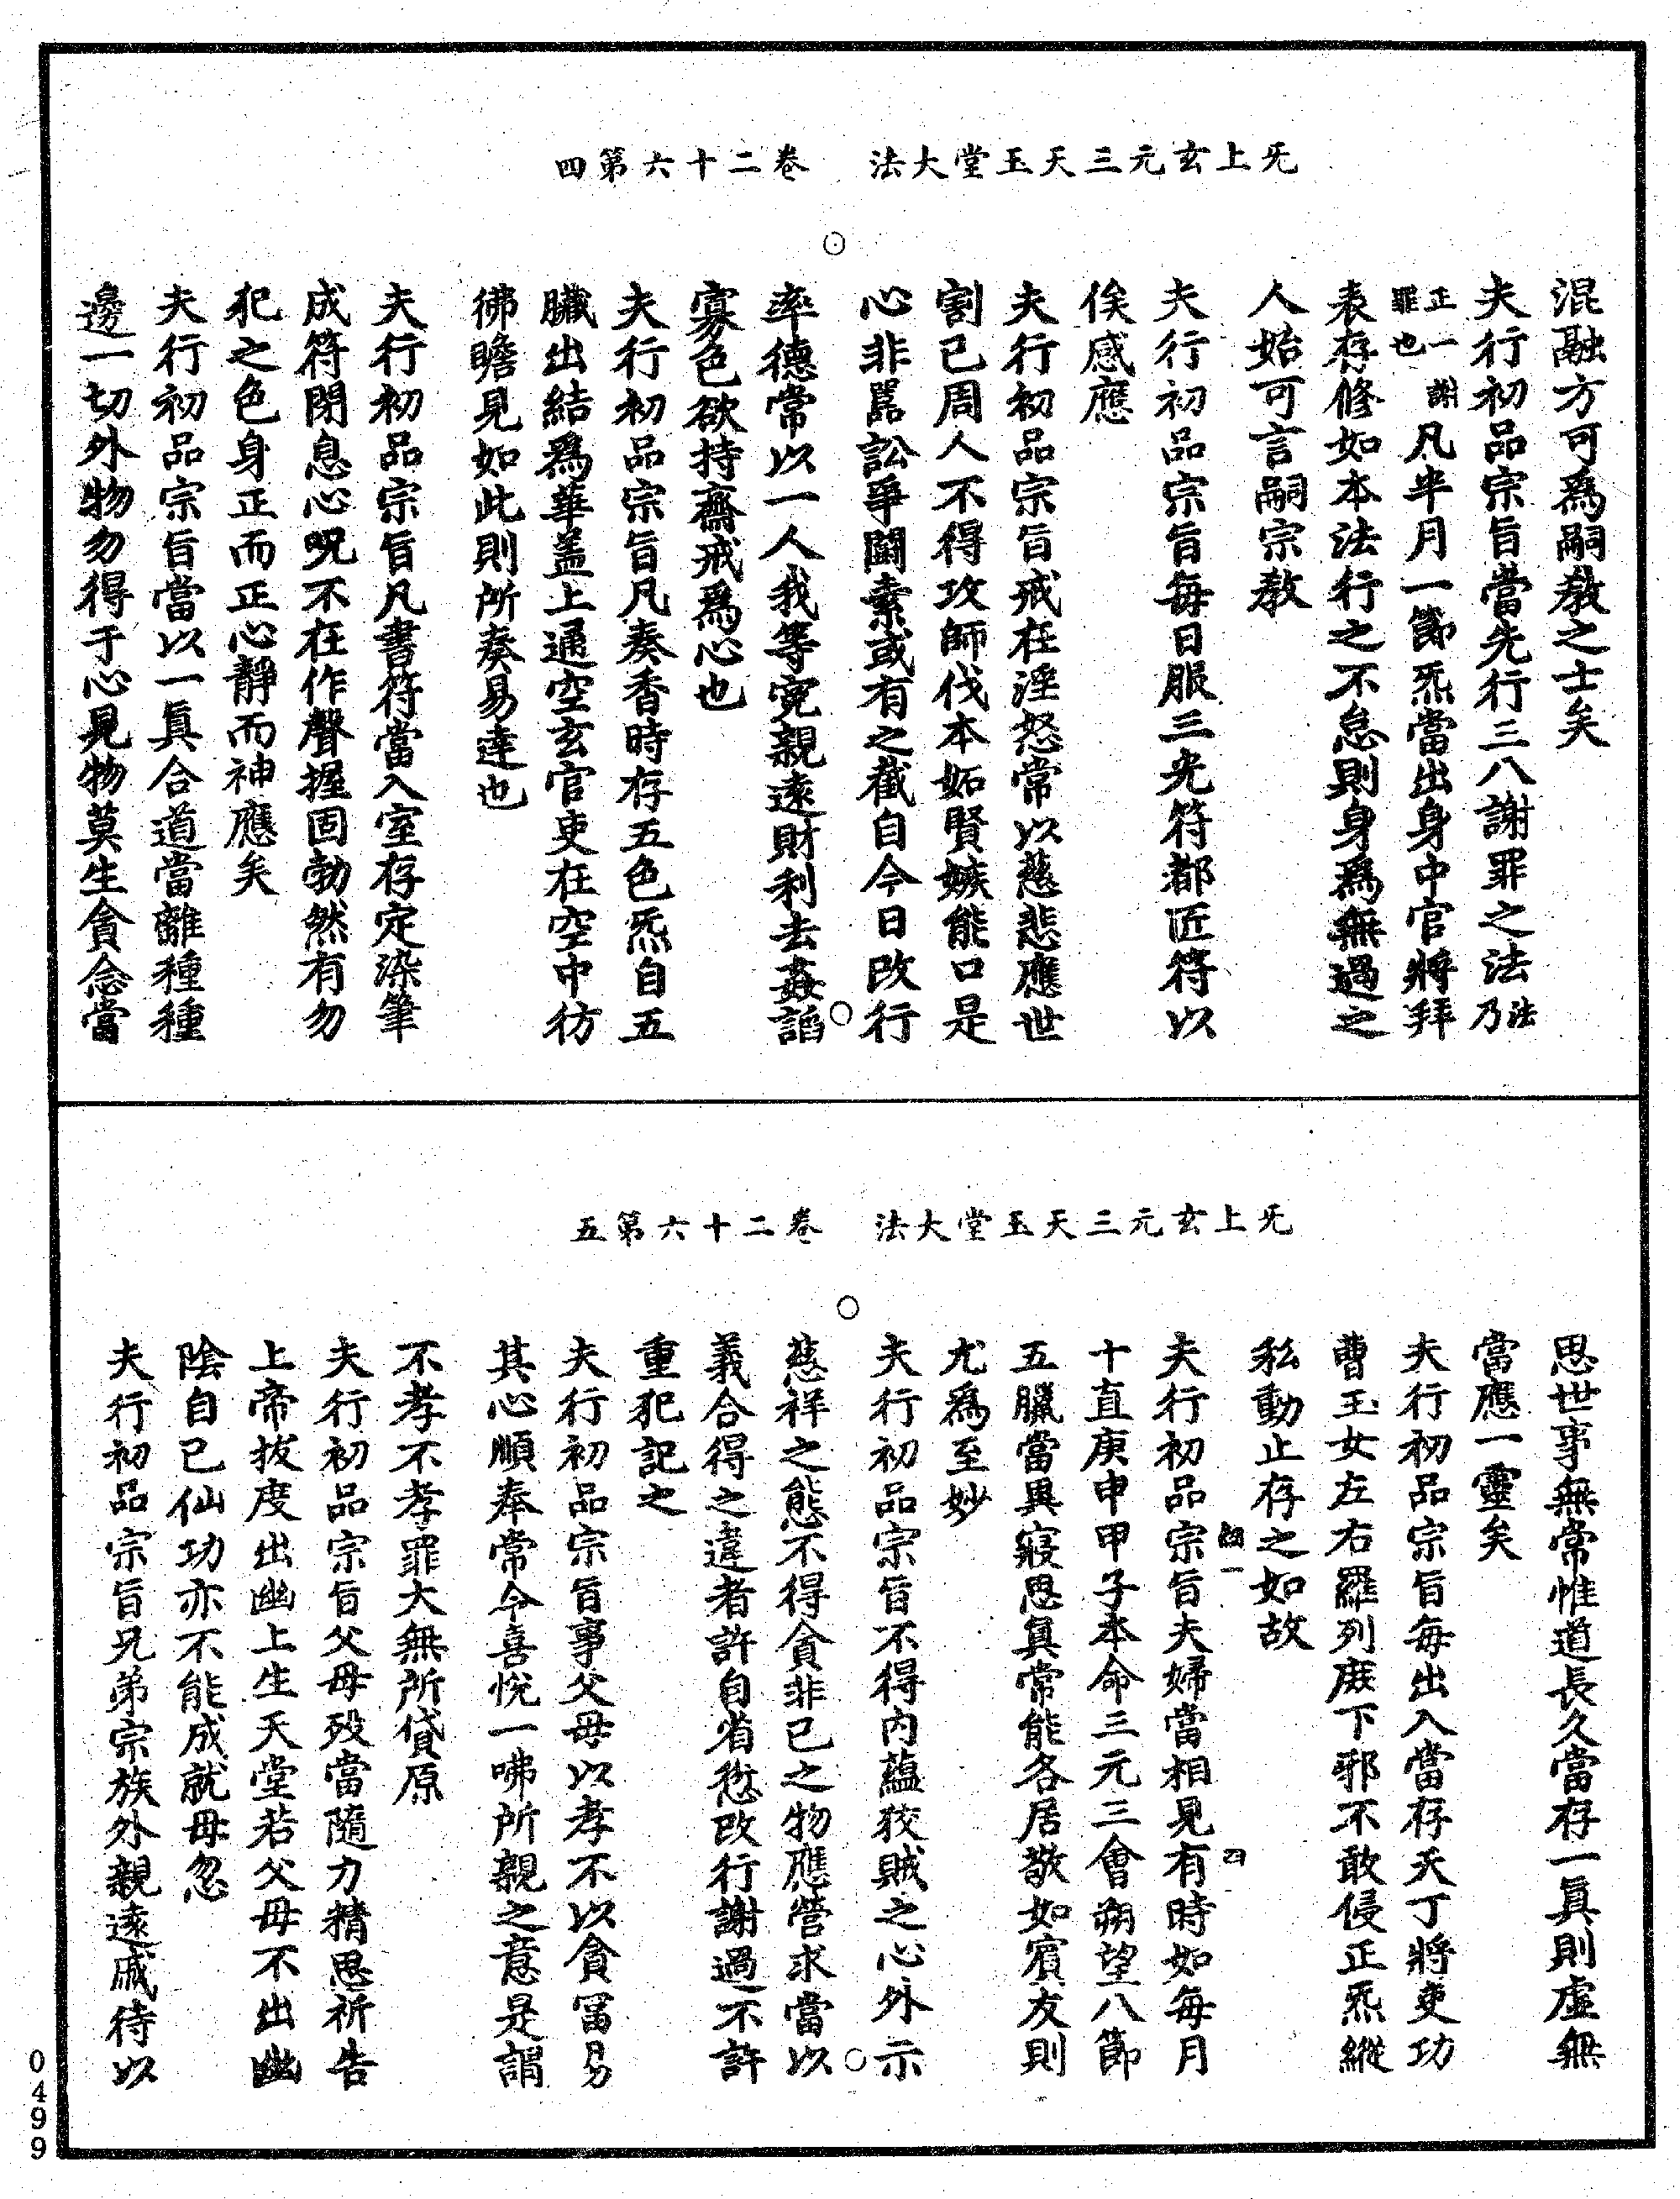 无上玄元三天玉堂大法　卷二十六第四
混融方可爲嗣教之士矣
夫行初品宗旨當先行三八謝罪之法法乃
正一謝罪也凡半月一節炁當出身中官將拜
表存修如本法行之不怠則身爲無過之
人始可言嗣宗教
夫行初品宗旨每日服三光符都匠符以
俟感應
夫行初品宗旨戒在淫怒常以慈悲應世
割已周人不得攻師伐本妬賢嫉能口是
心非嚚訟爭鬪素或有之截自今日改行
率德常以一人我等寃親遠財利去姦諂
寡色欲持齋戒爲心也
夫行初品宗旨凡奏香時存五色炁自五
臟出結爲華盖上通空玄官吏在空中彷
彿瞻見如此則所奏易達也
夫行初品宗旨凡書符當入室存定染筆
成符閉息心呪不在作聲握固勃然有勿
犯之色身正而正心靜而神應矣
夫行初品宗旨當以一眞合道當離種種
邊一切外物勿得于心見物莫生貪念當
无上玄元三天玉堂大法　卷二十六第五
思世事無常惟道長久當存一眞則虛無
當應一靈矣
夫行初品宗旨每出入當存天丁將吏功
曹玉女左右羅列庶下邪不敢侵正炁縱
私動止存之如故
夫行初品宗旨夫婦當相見有時如每月
十直庚申甲子本命三元三會朔望八節
五臘當異寢思眞常能各居敬如賓友則
尤爲至妙
夫行初品宗旨不得内蘊狡賊之心外示
慈祥之態不得貪非已之物應營求當以
義合得之違者許自省愆改行謝過不許
重犯記之
夫行初品宗旨事父母以孝不以貪冨易
其心順奉常令喜悅一咈所親之意是謂
不孝不孝罪大無所貸原
夫行初品宗旨父母歿當隨力精思祈告
上帝拔度出幽上生天堂若父母不出幽
陰自已仙功亦不能成就毋忽
夫行初品宗旨兄弟宗族外親遠戚待以
0499